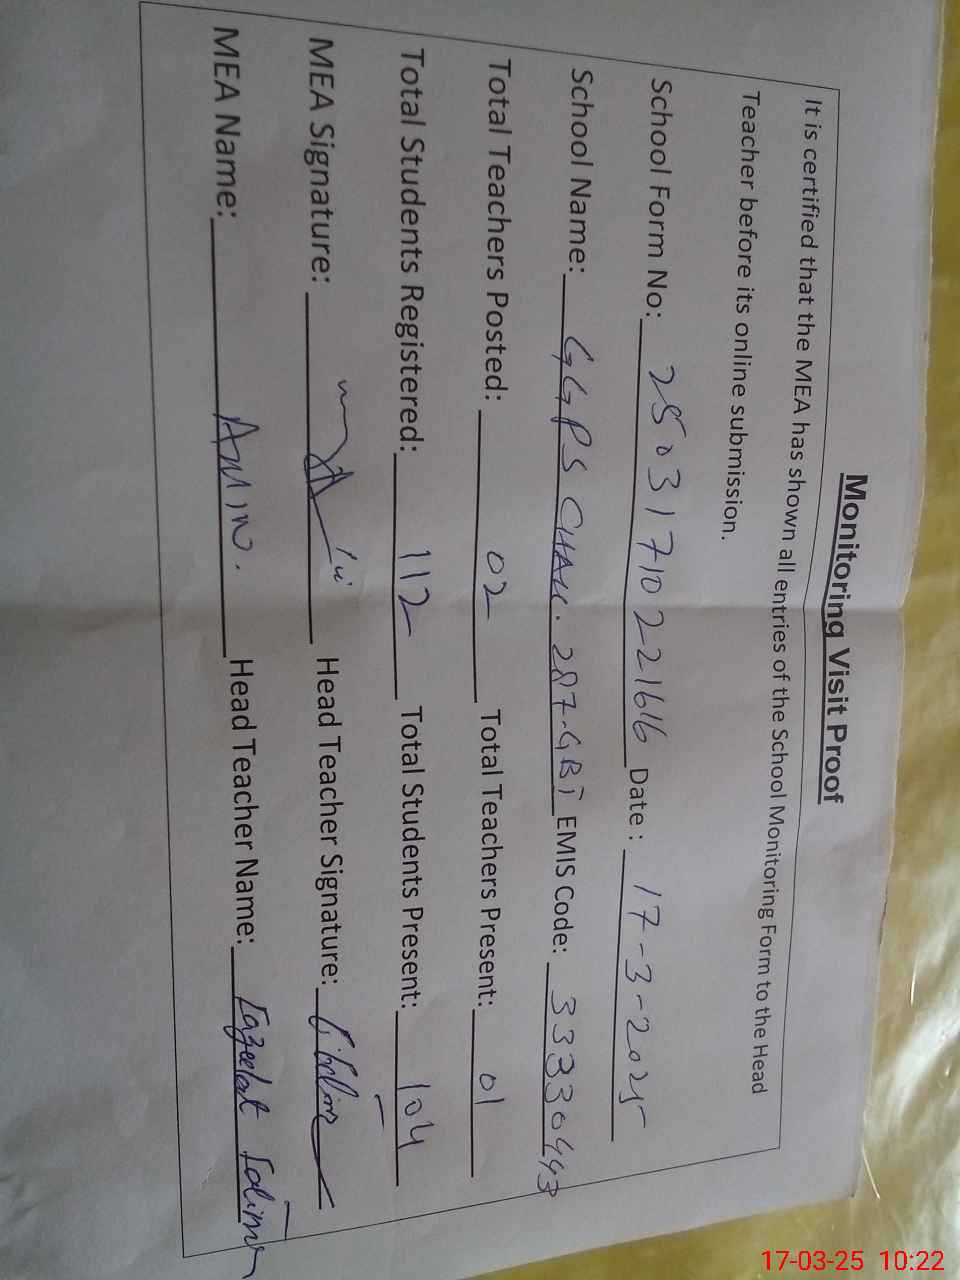 Monitoring Visit Proof
It is certified that the MEA has shown all entries of the School Monitoring Form to the Head
Teacher before its online submission.
School Form No: 25031710221616 Date: 17-3-2025
School Name: GGPS CHAK. 287-GBI EMIS Code: 33330443
Total Teachers Posted: 02 Total Teachers Present: 01
Total Students Registered: 112 Total Students Present: 104
MEA Signature: Head Teacher Signature:
MEA Name: AMIN. Head Teacher Name:
17-03-25 10:22